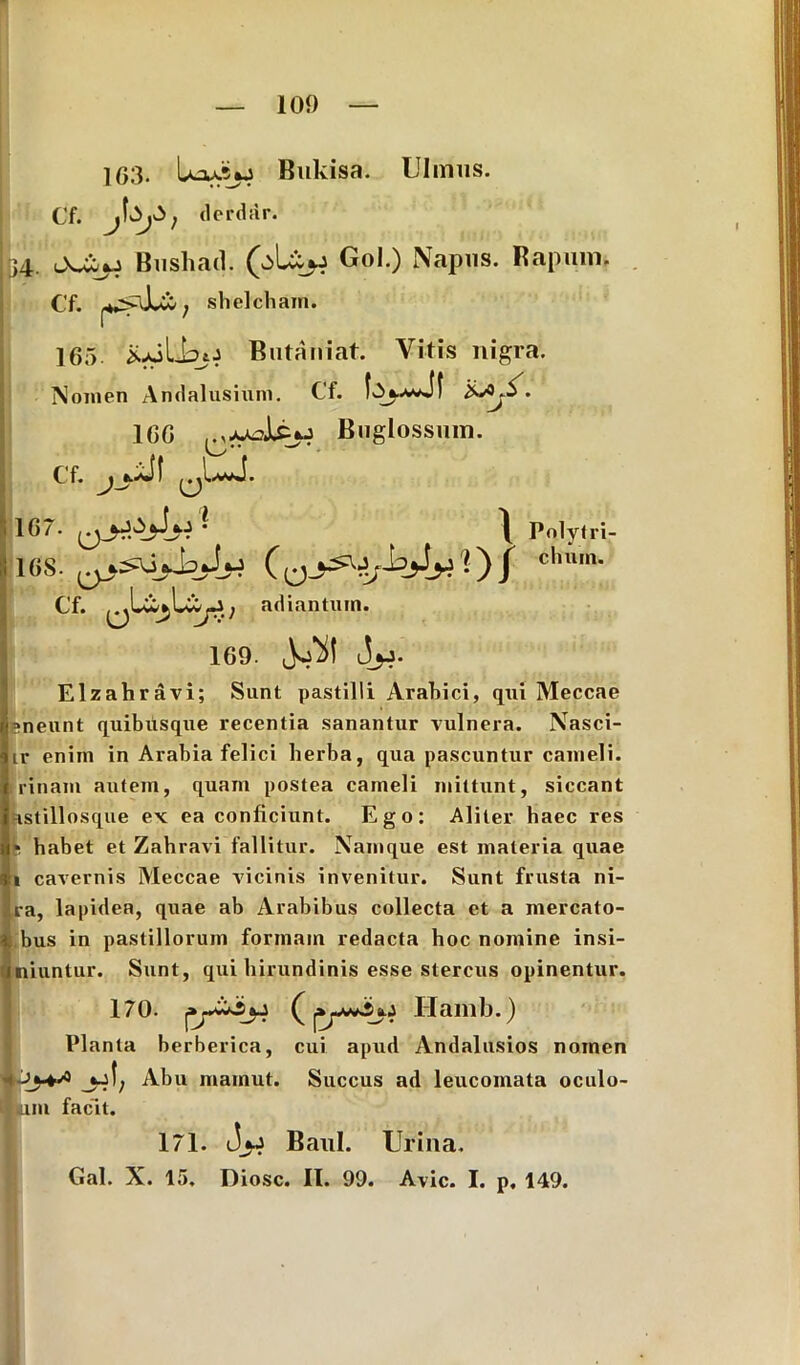 — 109 —
163. بوقيصا Bukisa. Ulmus.
Cf. دردار, derdâr.
34. بوشد Bushad. (بوشاد Gol.) Napus. Rapum.
Cf. شلجم, shelcham.
165. بوطانية Butâniat. Vitis nigra.
Nomen Andalusium. Cf. كرمة السودا.
166 بوغلصن Buglossum.
Cf. لسان الثور.
167. ? } Polytri-
168. ( ?) } chum.
Cf. برشاوشان, adiantum.
169. بول الابل.
Elzahrâvi; Sunt pastilli Arabici, qui Meccae
eneunt quibusque recentia sanantur vulnera. Nasci-
ur enim in Arabia felici herba, qua pascuntur cameli.
rinam autem, quam postea cameli mittunt, siccant
astillosque ex ea conficiunt. Ego: Aliter haec res
habet et Zahravi fallitur. Namque est materia quae
cavernis Meccae vicinis invenitur. Sunt frusta ni-
ra, lapidea, quae ab Arabibus collecta et a mercato-
bus in pastillorum formam redacta hoc nomine insi-
niuntur. Sunt, qui hirundinis esse stercus opinentur.
170. بوقشرم (بوقسرم Hamb.)
Planta berberica, cui apud Andalusios nomen
ابو, Abu mamut. Succus ad leucomata oculo-
um facit.
171. بول Baul. Urina.
Gal. X. 15. Diosc. II. 99. Avic. I. p. 149.